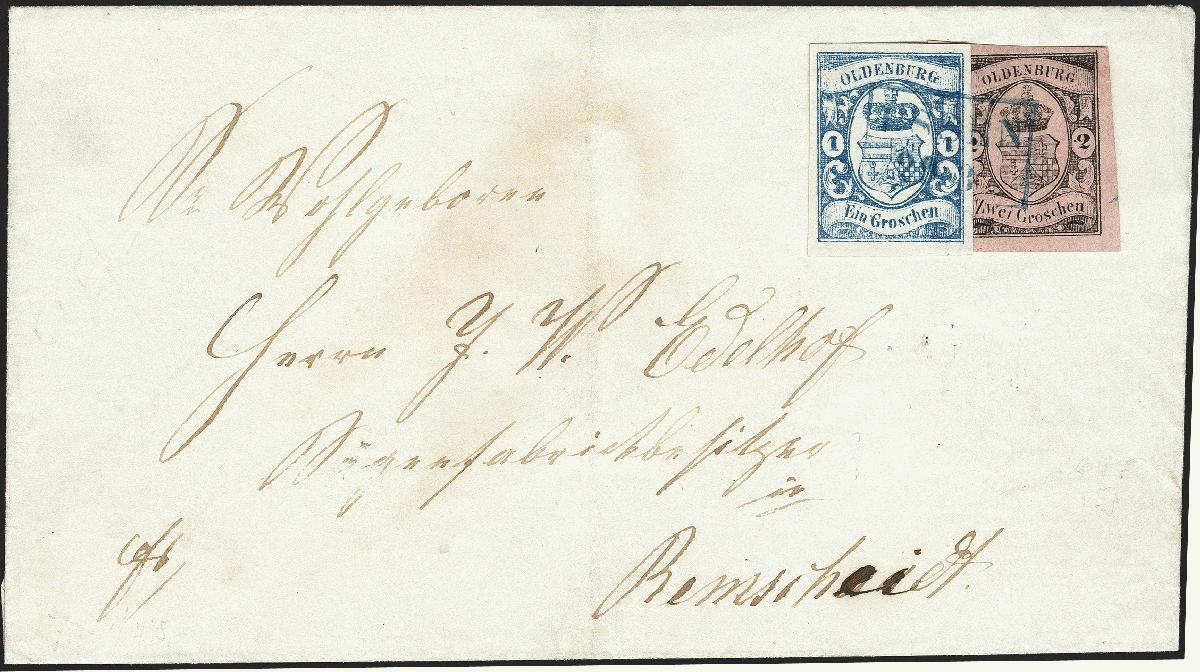 OLDENBURG
1 1
Ein Groschen
OLDENBURG
2 2
Zwei Groschen
Sr Wohlgeboren
Herrn J. W. Edelhof.
Sägenfabrickbesitzer
in
Remscheidt.